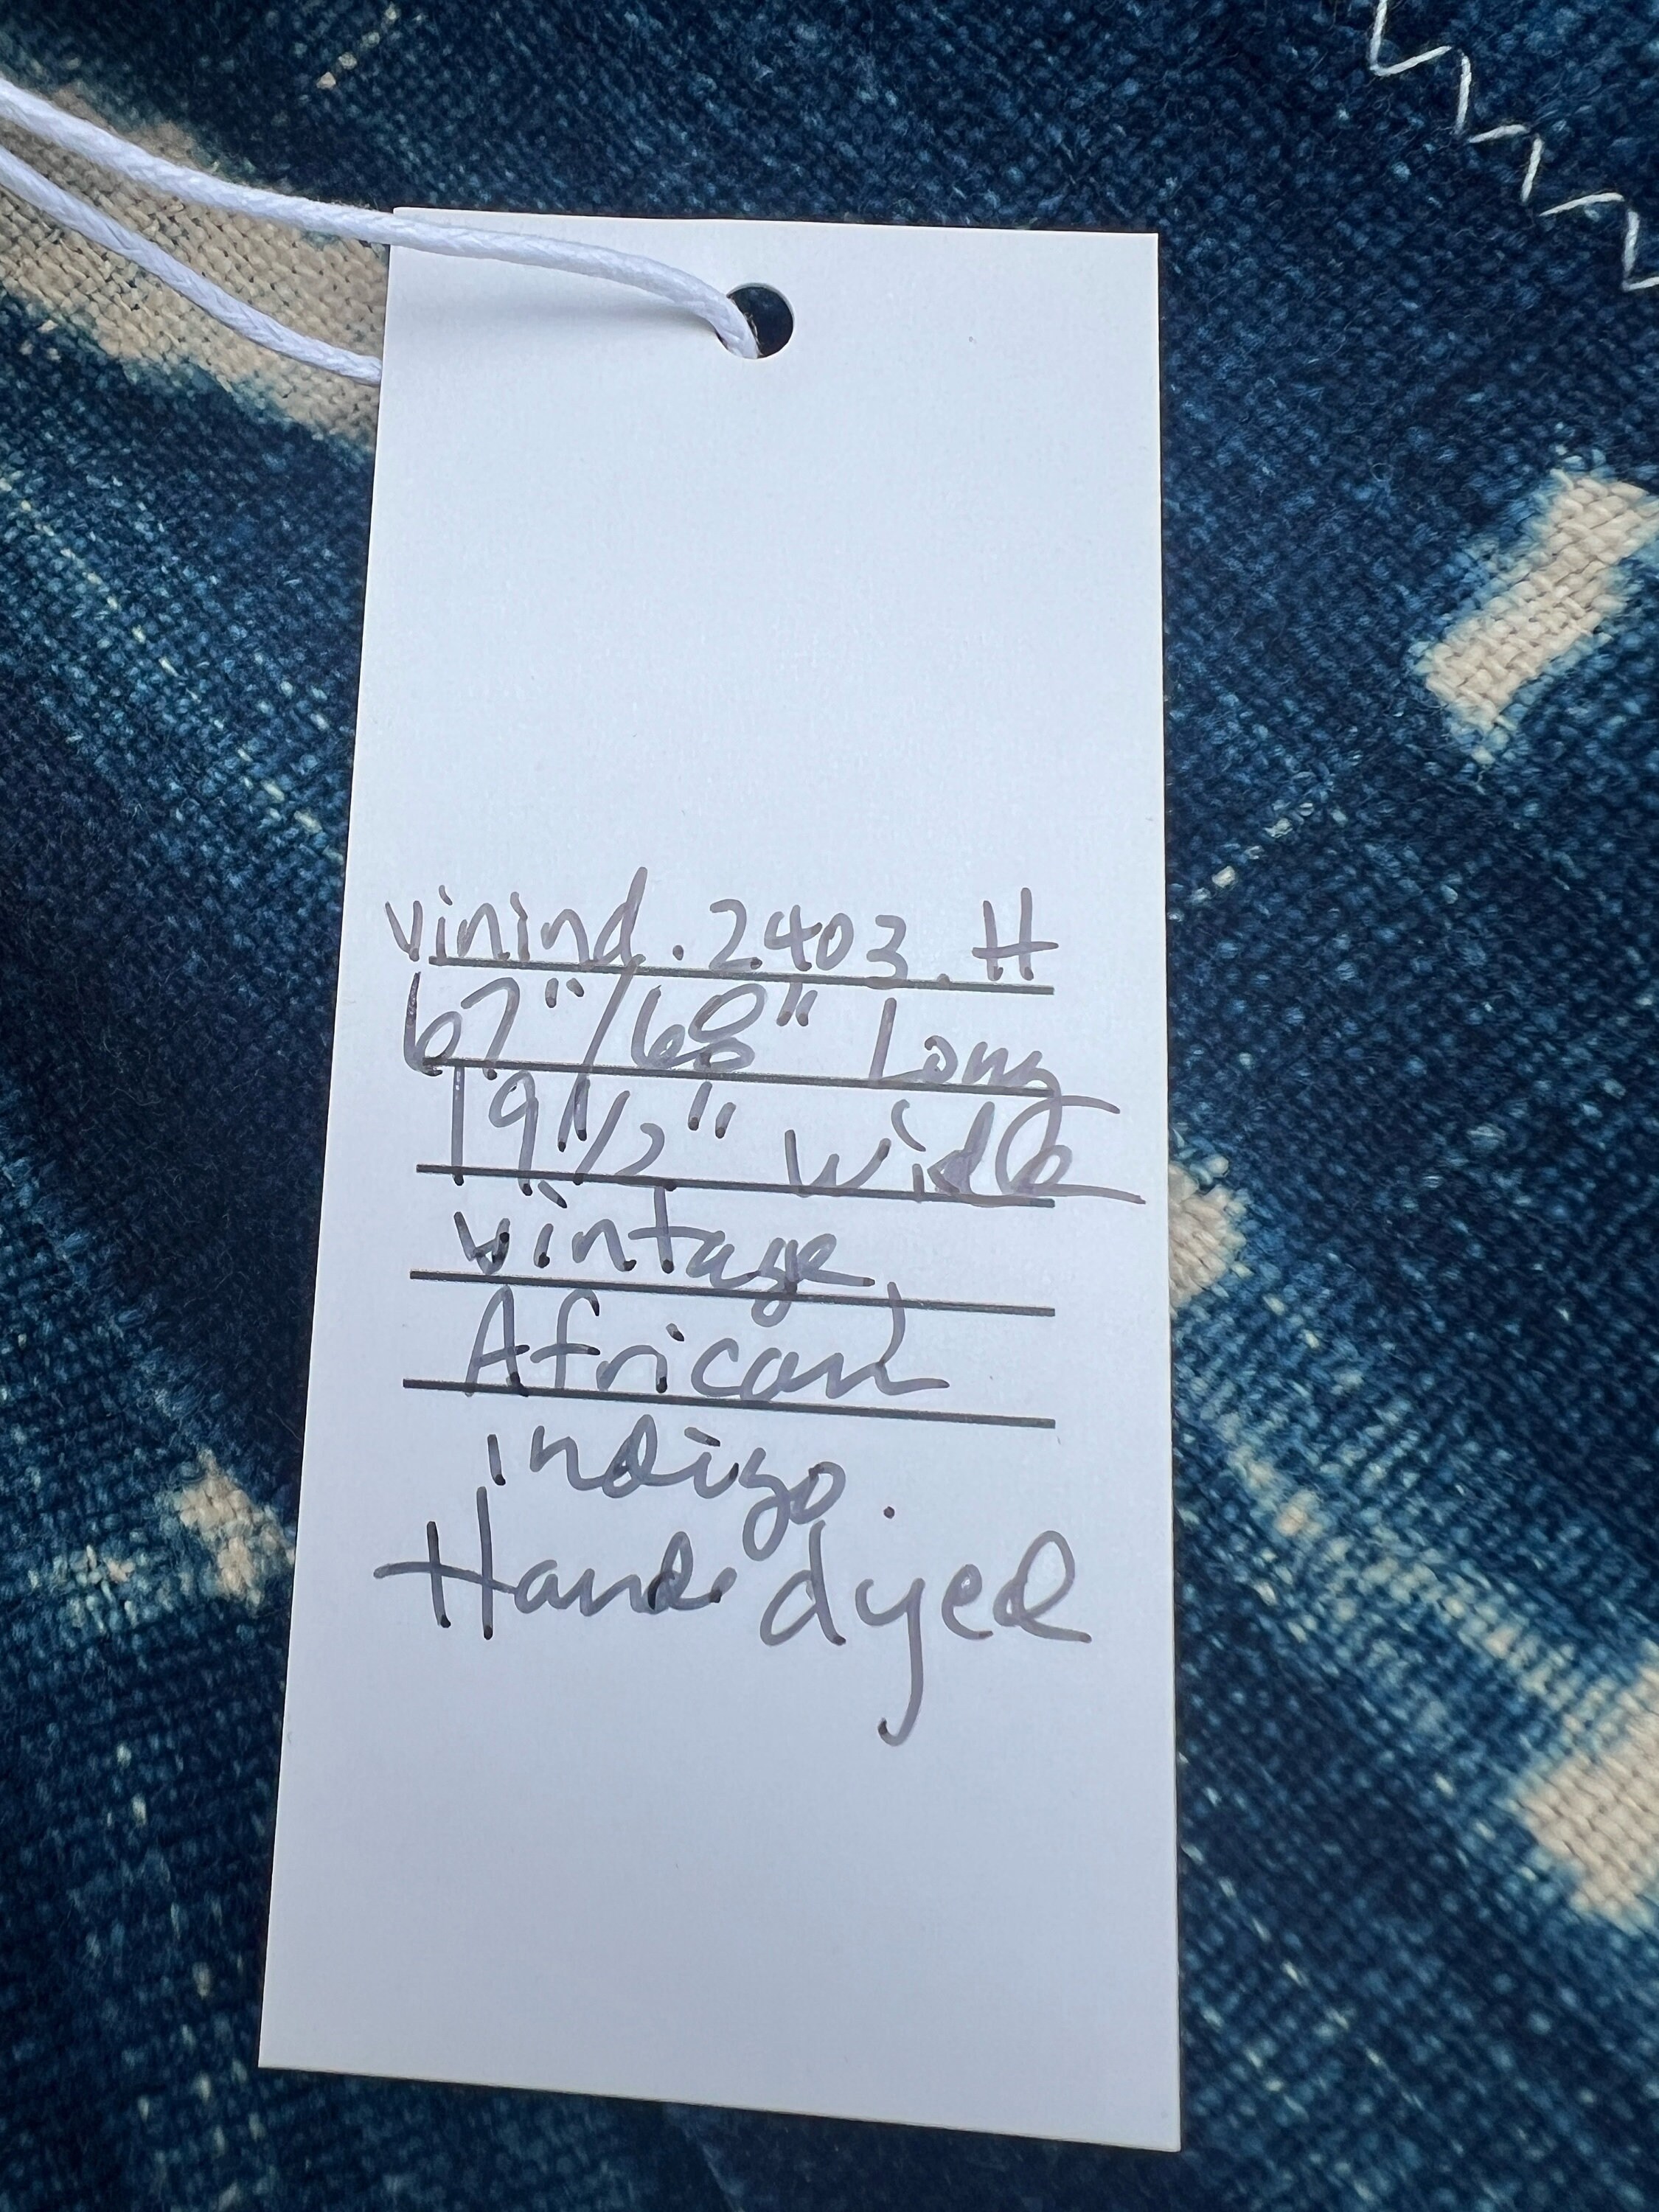 vinind.2403.H
67"/68" Long
19 1/2" wide
vintage,
African
indigo.
Hand dyed